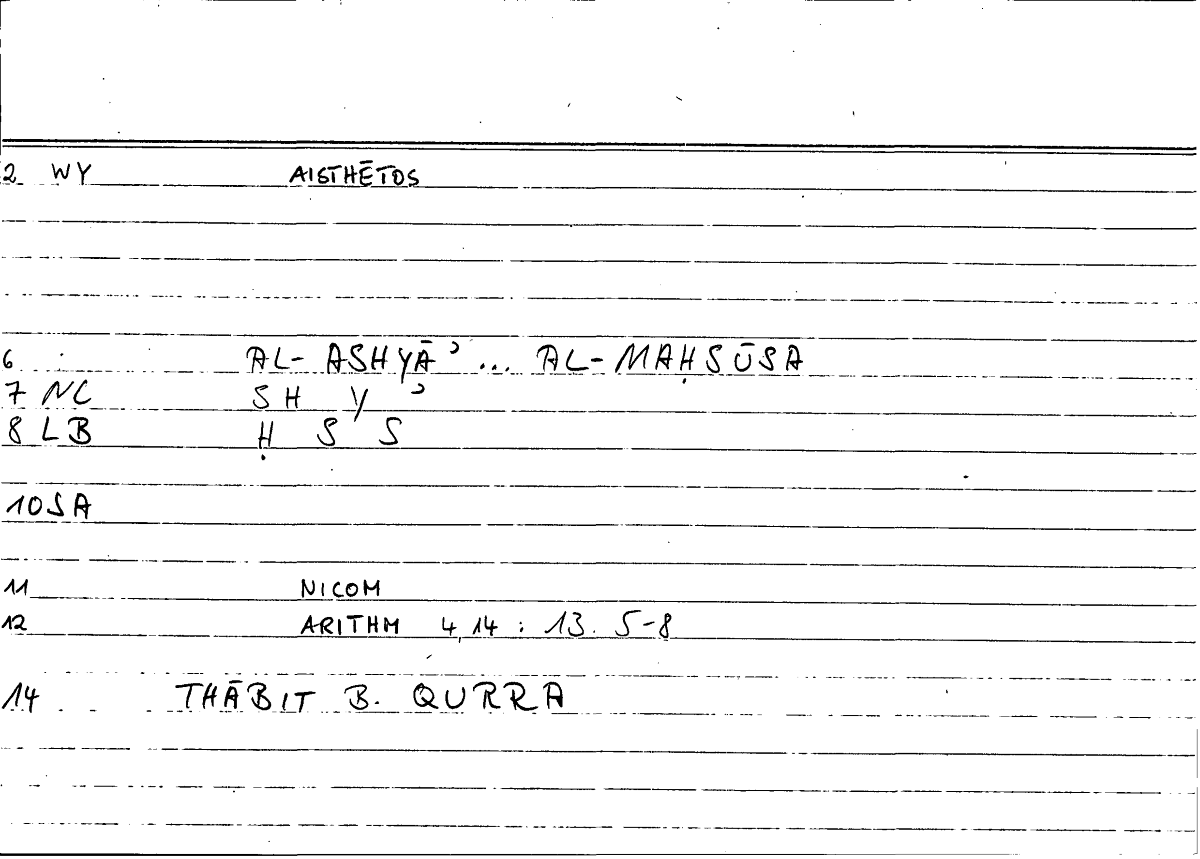 2 WY AISTHĒTOS
6 AL- ASHYĀʾ ... AL-MAḤSŪSA
7 NC SH Y ʾ
8 LB Ḥ S S
10 SA
11 NICOM
12 ARITHM 4,14 : 13. 5-8
14 THĀBIT B. QURRA